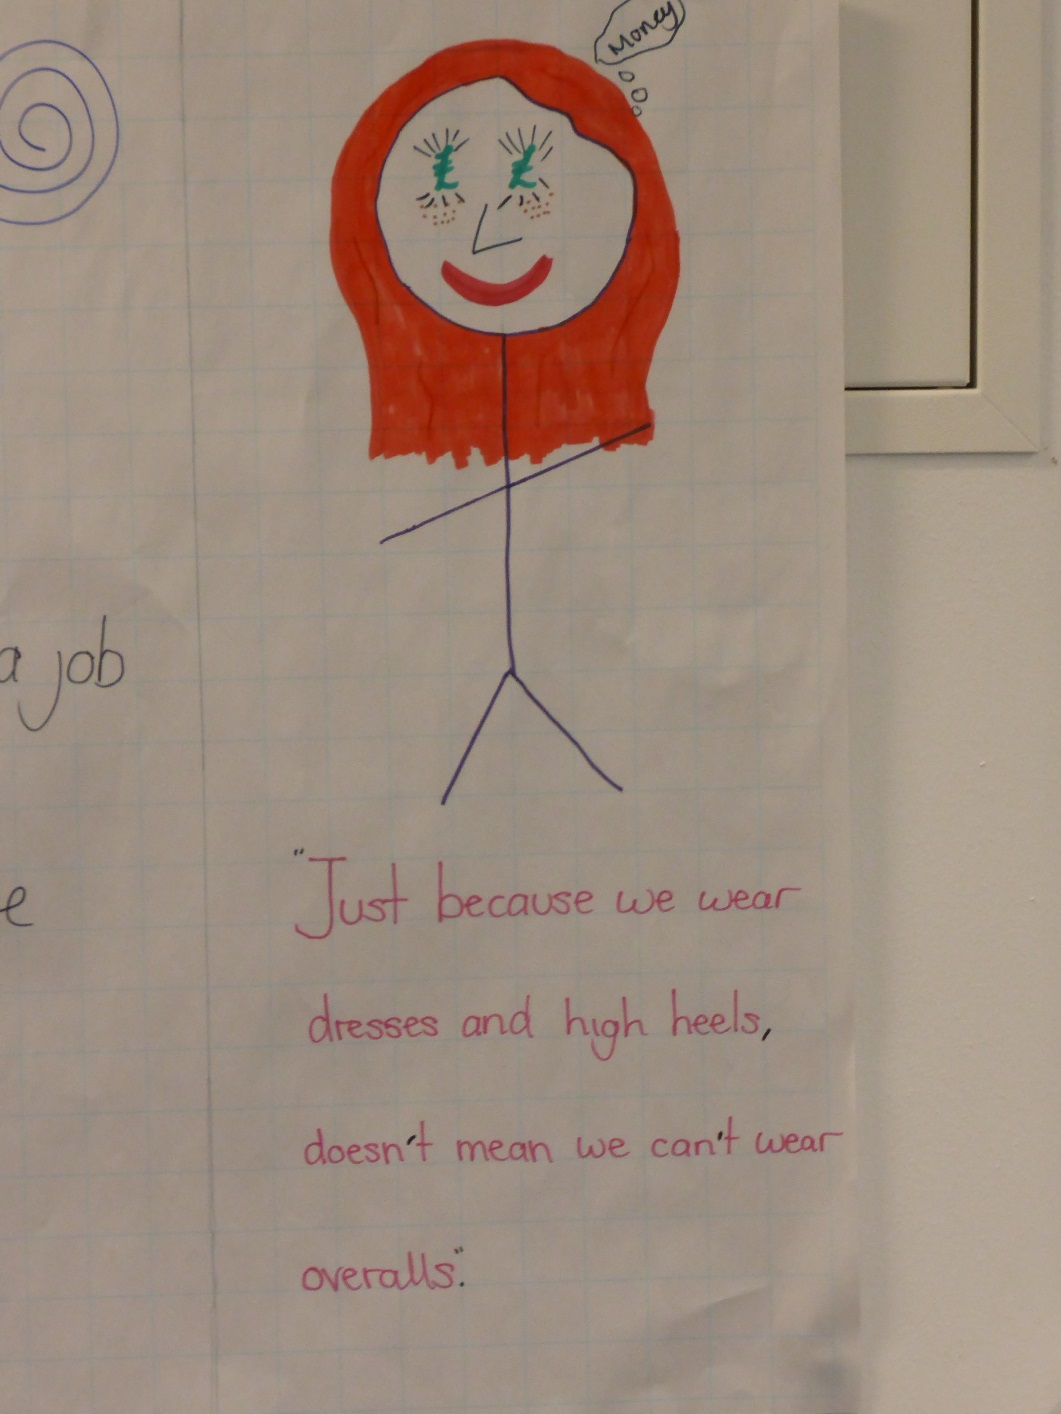 Money
£ £
a job
e
"Just because we wear
dresses and high heels,
doesn't mean we can't wear
overalls".